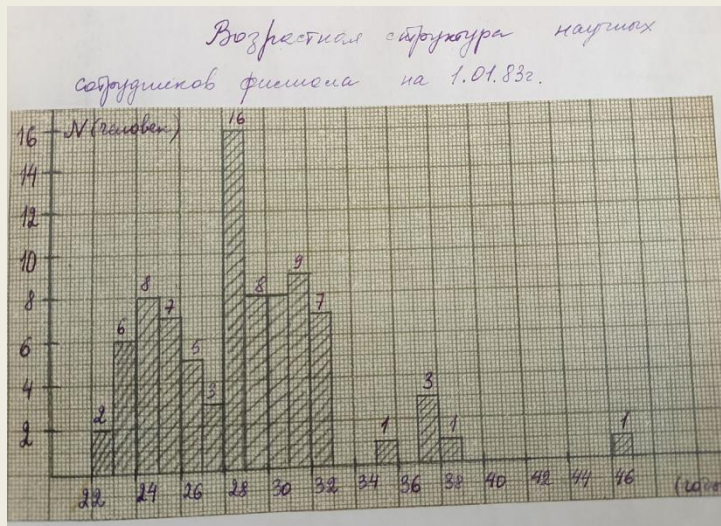 Возрастная структура научных
сотрудников филиала на 1.01.83г.
N (человек)
16
14
12
10
8
6
4
2
2 6 8 7 5 3 16 8 9 7 1 3 1 1
22 24 26 28 30 32 34 36 38 40 42 44 46 (годы